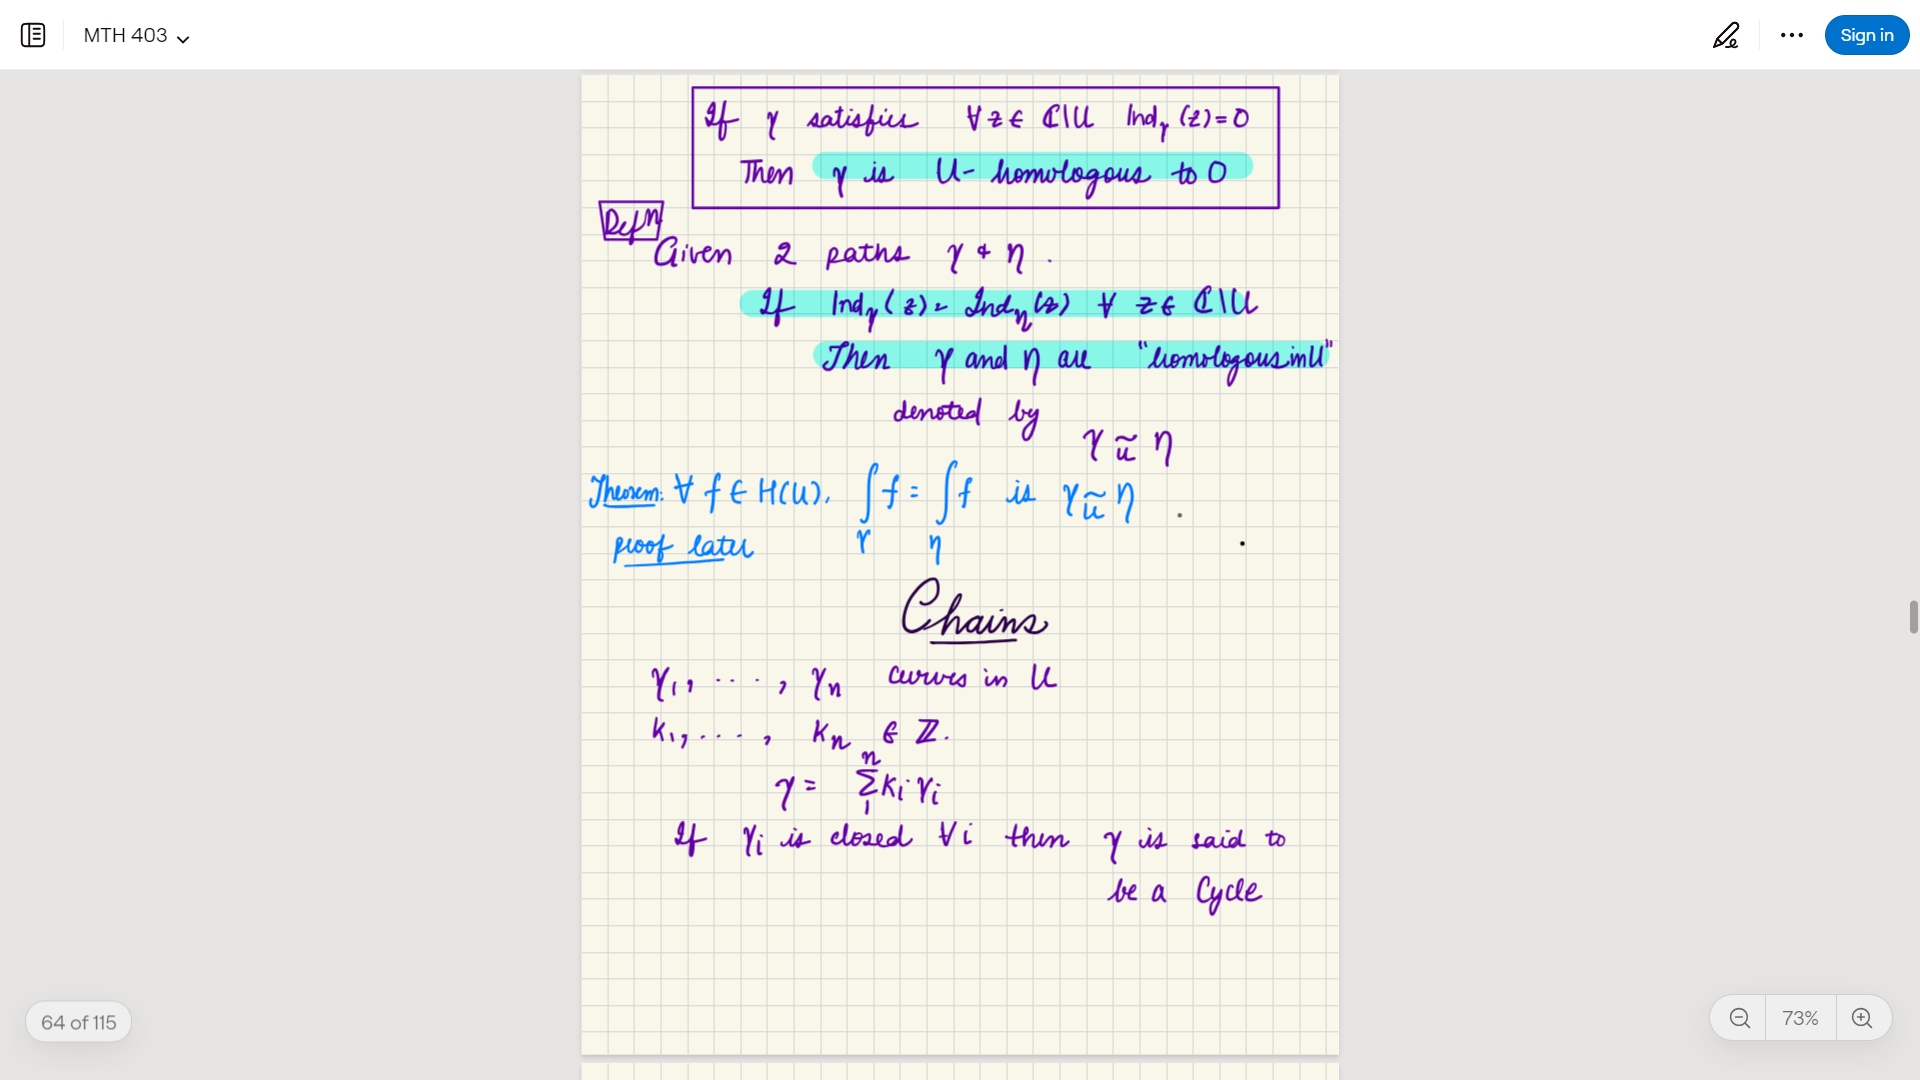 MTH 403
Sign in
If γ satisfies ∀ z ∈ ℂ\U Ind_γ (z) = 0
Then γ is U- homologous to 0
Defⁿ
Given 2 paths γ & η .
If Ind_γ (z) = Ind_η (z) ∀ z ∈ ℂ\U
Then γ and η are "homologous in U"
denoted by
γ ~_U η
Theorem: ∀ f ∈ H(U), ∫_γ f = ∫_η f is γ ~_U η .
proof later
Chains
γ₁, ...., γₙ curves in U
k₁, ...., kₙ ∈ ℤ.
γ = Σ₁ⁿ kᵢ γᵢ
If γᵢ is closed ∀i then γ is said to
be a Cycle
64 of 115
73%